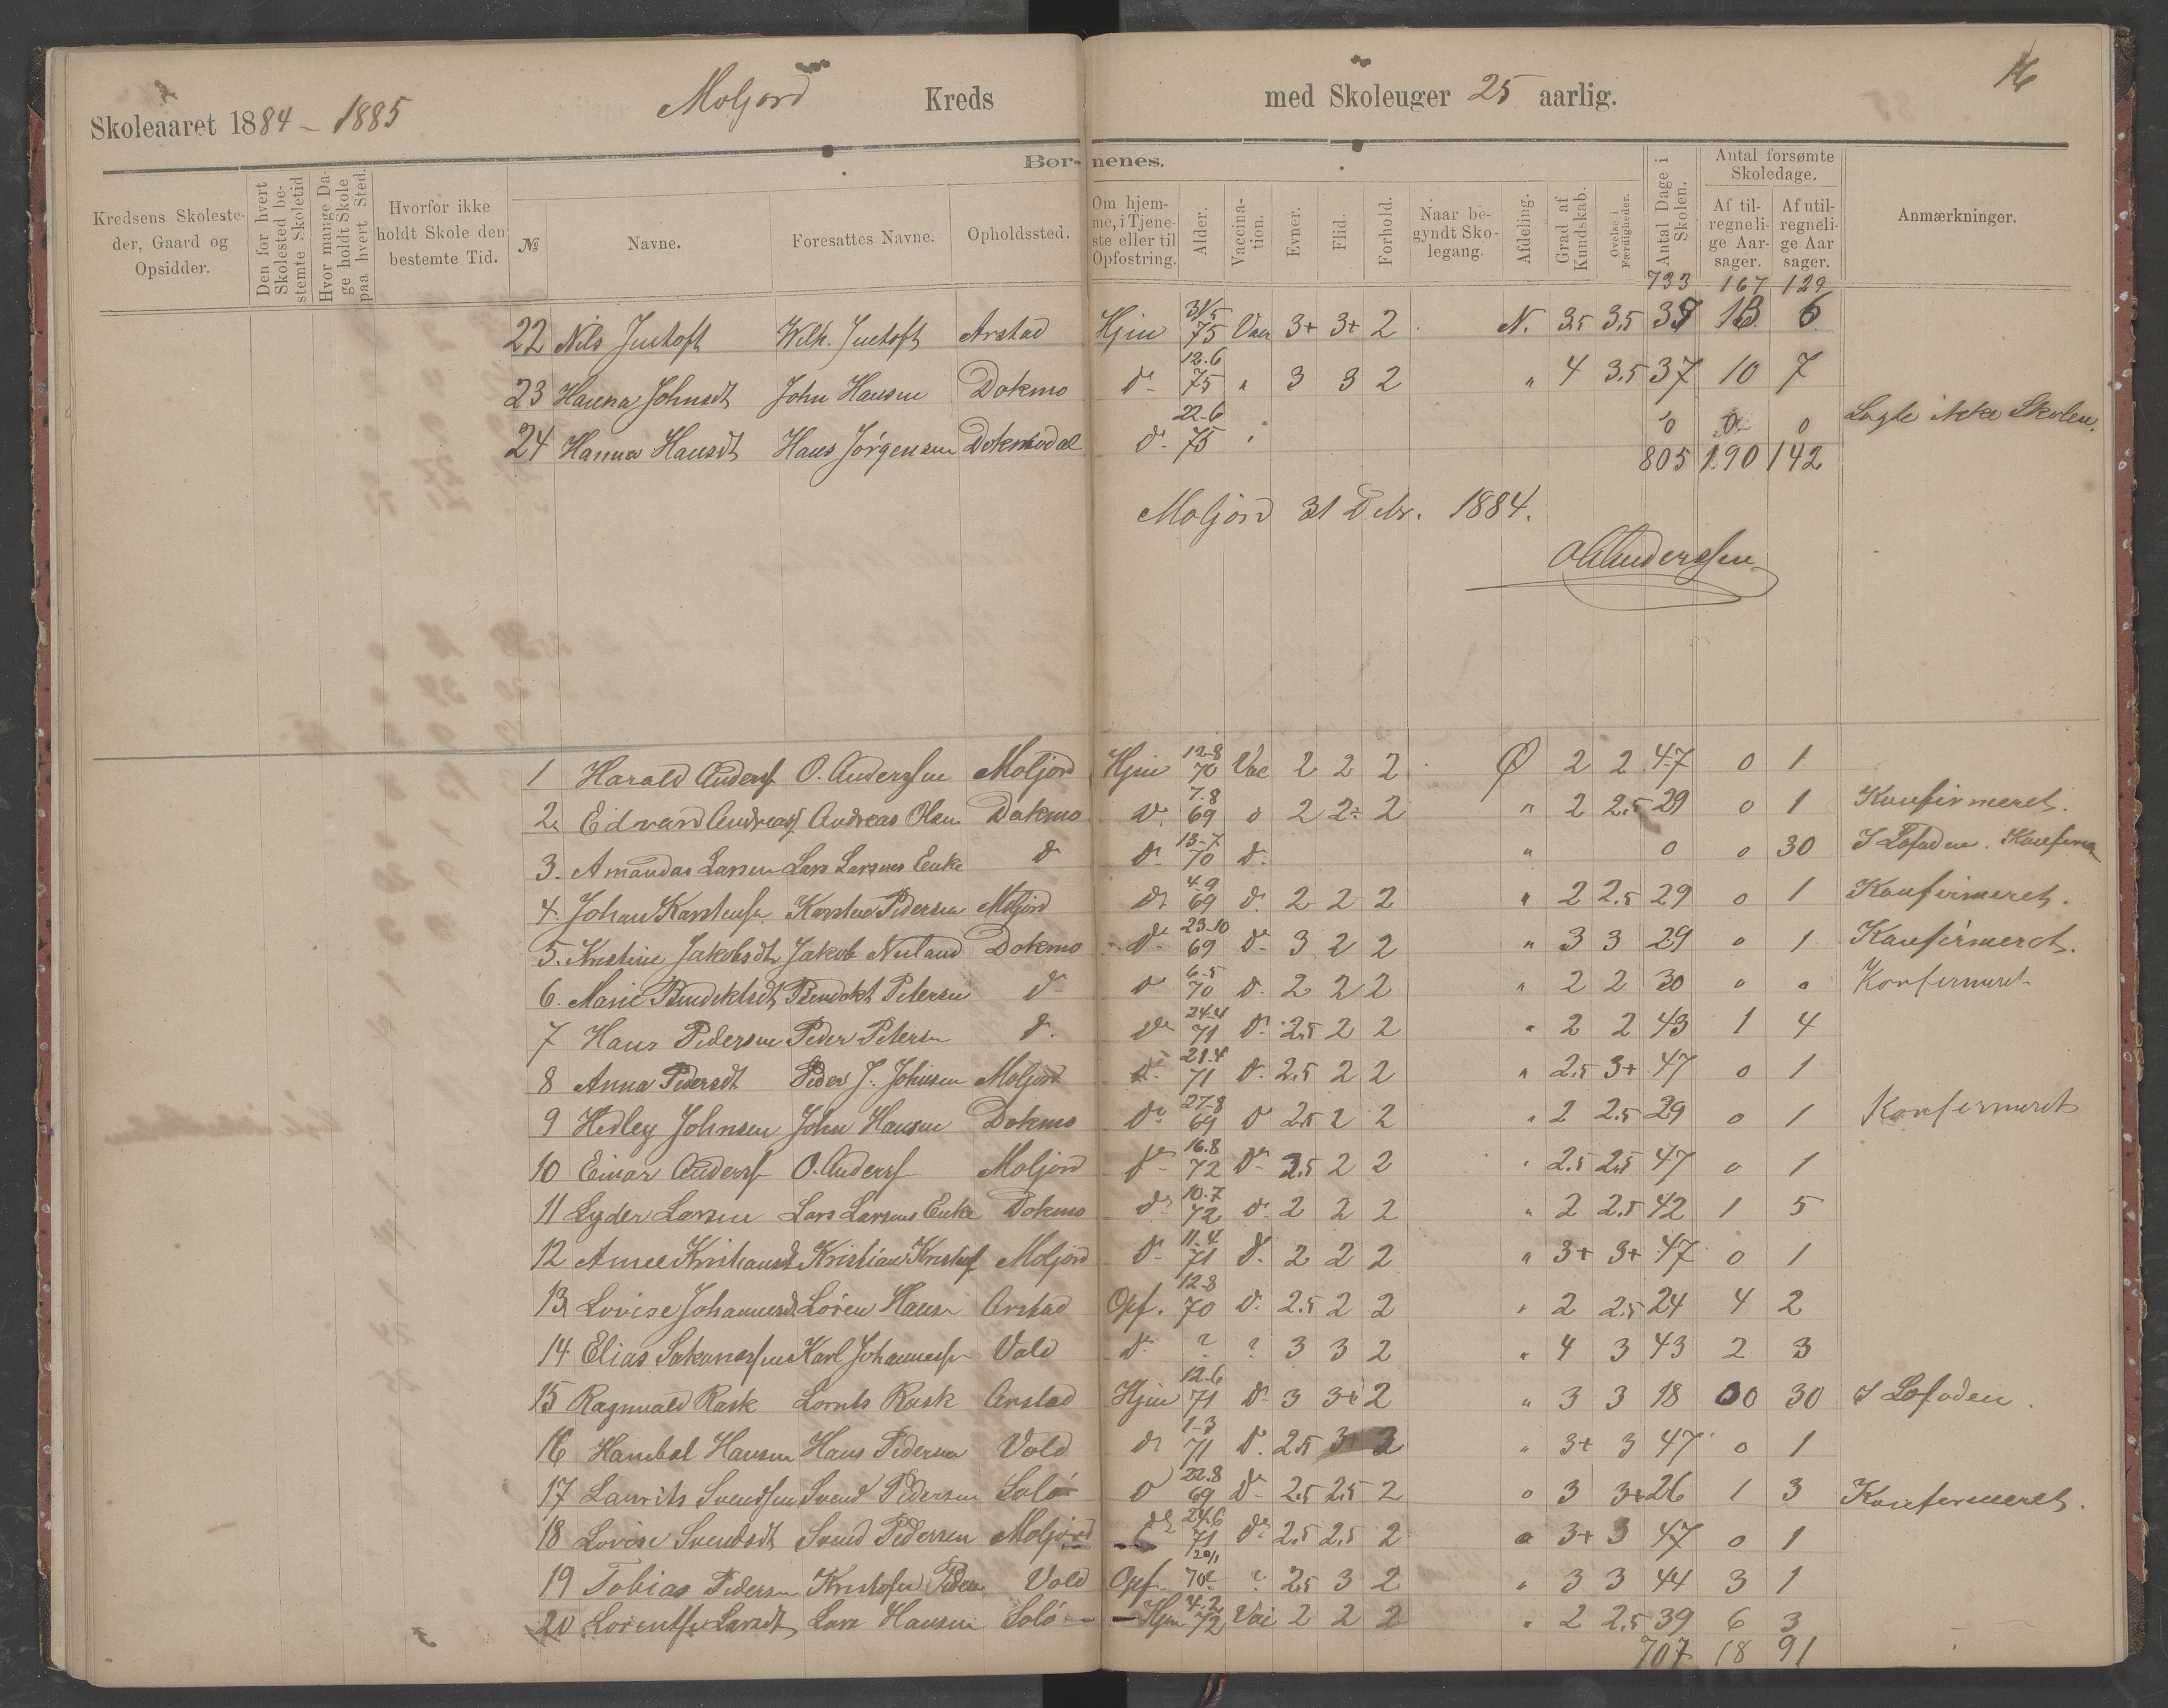 Skoleaaret 1884 - 1885 Moljord Kreds med Skoleuger 25 aarlig. 16
Børnenes.
Kredsens Skolesteder, Gaard og Opsidder.
Den for hvert Skolested bestemte Skoletid
Hvor mange Dage holdt Skole paa hvert Sted.
Hvorfor ikke holdt Skole den bestemte Tid.
№
Navne.
Foresattes Navne.
Opholdssted.
Om hjemme, i Tjeneste eller til Opfostring.
Alder.
Vaccination.
Evner.
Flid.
Forhold.
Naar begyndt Skolegang.
Afdeling.
Grad af Kundskab.
Øvelse i Færdigheder.
Antal Dage i Skolen.
Antal forsømte Skoledage.
Af tilregnelige Aarsager.
Af utilregnelige Aarsager.
Anmærkninger.
733 167 129
22 Nils Wilh. Arstad Hjm 31/5 75 Vac 3+ 3+ 2 N. 3.5 3.5 13 6
23 Hanna Johnsdt John Hansen Dokmo d- 12.6 75 " 3 3 2 " 4 3.5 37 10 7
24 Hanna Hansdt Hans Jörgensen Dokmodal d- 22-6 75 " 0 0 0 Søgte ikke Skolen.
805 190 142
Moljord 31 Debr. 1884.
OAAnderssen
1 Harald Anderss O. Anderssen Moljord Hjm 12-8 70 Vac 2 2 2 Ø 2 2 47 0 1
2. Edvard Andreass Andreas Olsen Dokmo d. 7.8 69 d 2 2 2 " 2 2.5 29 0 1 Konfirmeret.
3. Amandas Larsen Lars Larsens Enke d d- 13-7 70 d. " 0 0 30 I Lofoden. Konfirm
4. Johan Karstens. Karsten Pedersen Moljord d- 4.9 69 d. 2 2 2 " 2 2.5 29 0 1 Konfirmeret.
5. Kristine Jakobsdt Jakob Dokmo d- 23.10 69 d- 3 2 2 " 3 3 29 0 1 Konfirmeret.
6. Marie Bendiktsdt Bendikt Petersen d- d 6-5 70 d. 2 2 2 " 2 2 30 0 0 Konfirmeret
7 Hans Pedersen Peder Petersn d. d- 24.4 71 d- 2.5 2 2 " 2 2 43 1 4
8 Anna Pedersdt Peder J. Johnsen Moljord d- 21.4 71 d. 2.5 2 2 " 2.5 3+ 47 0 1
9 Hedley Johnsen John Hansen Dokmo d- 27-8 69 d 2.5 2 2 " 2 2.5 29 0 1 Konfirmeret
10 Einar Anderss O. Anderss Moljord d- 16.8 72 d- 2.5 2 2 " 2.5 2.5 47 0 1
11 Lyder Larsen Lars Larsens Enke Dokmo d- 10.7 72 d- 2 2 2 " 2 2.5 42 1 5
12 Kristiansdt Kristian Moljord d- 11.4 71 d. 2 2 2 " 3+ 3+ 47 0 1
13 Lovise Johannesdt Sören Hansn Arstad Opf. 12.8 70 d- 2.5 2 2 " 2 2.5 24 4 2
14 Elias Karl Johannessn Vold d- ? ? 3 3 2 " 4 3 43 2 3
15 Ragnvald Rask Lornts Rask Arstad Hjm 12.6 71 d- 3 3+ 2 " 3 3 18 00 30 I Lofoden.
16 Hanibal Hansen Hans Pedersen Vold d- 1-3 71 d. 2.5 3+ 2 " 3+ 3 47 0 1
17 Laurits Svendsen Svend Pedersen Solö d 22.8 69 d- 2.5 2.5 2 " 3 3+ 26 1 3 Konfirmeret.
18 Lovise Svendsdt Svend Pedersen Moljord d- 24.6 71 d- 2.5 2.5 2 " 3+ 3 47 0 1
19 Tobias Pedersen Kristofer Peders Vold Opf 20/1 70? ? 2.5 3 2 " 3 3 44 3 1
20 Larsdt Lars Hansen Solö Hjm 4.2 72 Vac 2 2 2 " 2 2.5 39 6 3
707 18 91